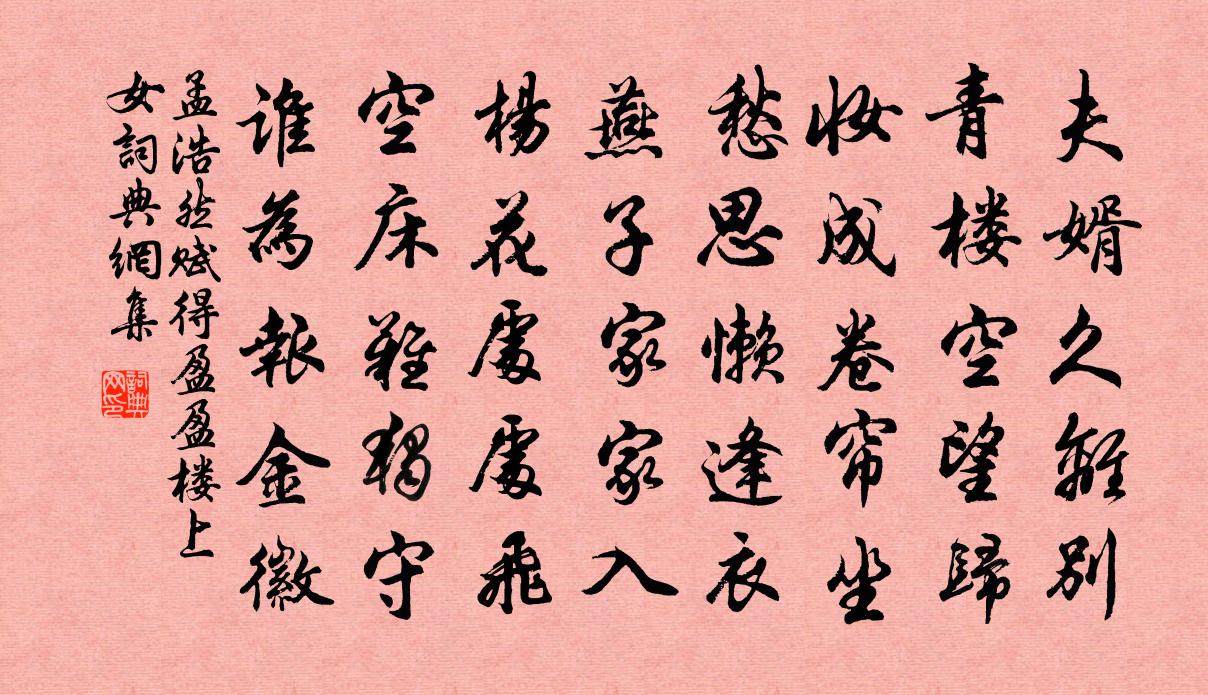 夫婿久離别
青楼空望歸
妆成卷帘坐
愁思懒逢衣
燕子家家入
楊花處處飛
空床難獨守
誰為報金徽
孟浩然赋得盈盈楼上
女詞典網集
詞典
网印